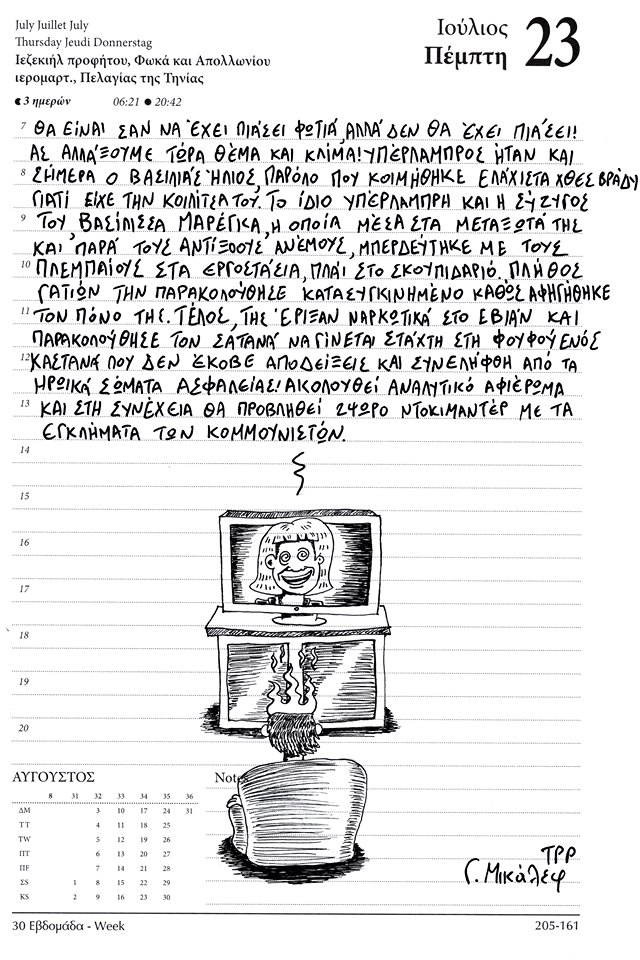 July Juillet July
Thursday Jeudi Donnerstag
Ιεζεκιήλ προφήτου, Φωκά και Απολλωνίου
ιερομαρτ., Πελαγίας της Τηνίας
3 ημερών 06:21 ● 20:42
Ιούλιος
Πέμπτη 23
7 ΘΑ ΕΊΝΑΙ ΣΑΝ ΝΑ ΈΧΕΙ ΠΙΆΣΕΙ ΦΩΤΙΆ, ΑΛΛΆ ΔΕΝ ΘΑ ΈΧΕΙ ΠΙΆΣΕΙ!
ΑΣ ΑΛΛΆΞΟΥΜΕ ΤΏΡΑ ΘΈΜΑ ΚΑΙ ΚΛΊΜΑ! ΥΠΈΡΛΑΜΠΡΟΣ ΉΤΑΝ ΚΑΙ
8 ΣΉΜΕΡΑ Ο ΒΑΣΙΛΙΆΣ ΉΛΙΟΣ, ΠΑΡΌΛΟ ΠΟΥ ΚΟΙΜΉΘΗΚΕ ΕΛΆΧΙΣΤΑ ΧΘΕΣ ΒΡΆΔΥ
ΓΙΑΤΊ ΕΊΧΕ ΤΗΝ ΚΟΙΛΊΤΣΑ ΤΟΥ. ΤΟ ΊΔΙΟ ΥΠΈΡΛΑΜΠΡΗ ΚΑΙ Η ΣΎΖΥΓΟΣ
9 ΤΟΥ, ΒΑΣΊΛΙΣΣΑ ΜΑΡΈΓΚΑ, Η ΟΠΟΊΑ ΜΈΣΑ ΣΤΑ ΜΕΤΑΞΩΤΆ ΤΗΣ
ΚΑΙ ΠΑΡΆ ΤΟΥΣ ΑΝΤΊΞΟΟΥΣ ΑΝΈΜΟΥΣ, ΜΠΕΡΔΕΎΤΗΚΕ ΜΕ ΤΟΥΣ
10 ΠΛΕΜΠΑΊΟΥΣ ΣΤΑ ΕΡΓΟΣΤΆΣΙΑ, ΠΛΆΙ ΣΤΟ ΣΚΟΥΠΙΔΑΡΙΌ. ΠΛΉΘΟΣ
ΓΑΤΙΏΝ ΤΗΝ ΠΑΡΑΚΟΛΟΎΘΗΣΕ ΚΑΤΑΣΥΓΚΙΝΗΜΈΝΟ ΚΑΘΏΣ ΑΦΗΓΉΘΗΚΕ
11 ΤΟΝ ΠΌΝΟ ΤΗΣ. ΤΈΛΟΣ, ΤΗΣ ΈΡΙΞΑΝ ΝΑΡΚΩΤΙΚΆ ΣΤΟ ΕΒΙΆΝ ΚΑΙ
ΠΑΡΑΚΟΛΟΎΘΗΣΕ ΤΟΝ ΣΑΤΑΝΆ ΝΑ ΓΊΝΕΤΑΙ ΣΤΆΧΤΗ ΣΤΗ ΦΟΥΦΟΎ ΕΝΌΣ
12 ΚΑΣΤΑΝΆ ΠΟΥ ΔΕΝ ΈΚΟΒΕ ΑΠΟΔΕΊΞΕΙΣ ΚΑΙ ΣΥΝΕΛΉΦΘΗ ΑΠΌ ΤΑ
ΗΡΩΙΚΆ ΣΏΜΑΤΑ ΑΣΦΑΛΕΊΑΣ! ΑΚΟΛΟΥΘΕΊ ΑΝΑΛΥΤΙΚΌ ΑΦΙΈΡΩΜΑ
13 ΚΑΙ ΣΤΗ ΣΥΝΈΧΕΙΑ ΘΑ ΠΡΟΒΛΗΘΕΊ 24ΩΡΟ ΝΤΟΚΙΜΑΝΤΈΡ ΜΕ ΤΑ
ΕΓΚΛΉΜΑΤΑ ΤΩΝ ΚΟΜΜΟΥΝΙΣΤΏΝ.
14
15
16
17
18
19
20
ΑΥΓΟΥΣΤΟΣ
8 31 32 33 34 35 36
ΔΜ 3 10 17 24 31
ΤΤ 4 11 18 25
TW 5 12 19 26
ΠΤ 6 13 20 27
ΠF 7 14 21 28
ΣS 1 8 15 22 29
KS 2 9 16 23 30
Notes
ΤΡΡ
Γ. Μικάλεφ
30 Εβδομάδα - Week
205-161